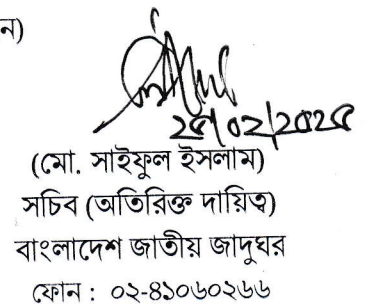 ন)
(মো. সাইফুল ইসলাম)
সচিব (অতিরিক্ত দায়িত্ব)
বাংলাদেশ জাতীয় জাদুঘর
ফোন : ০২-৪১০৬০২৬৬